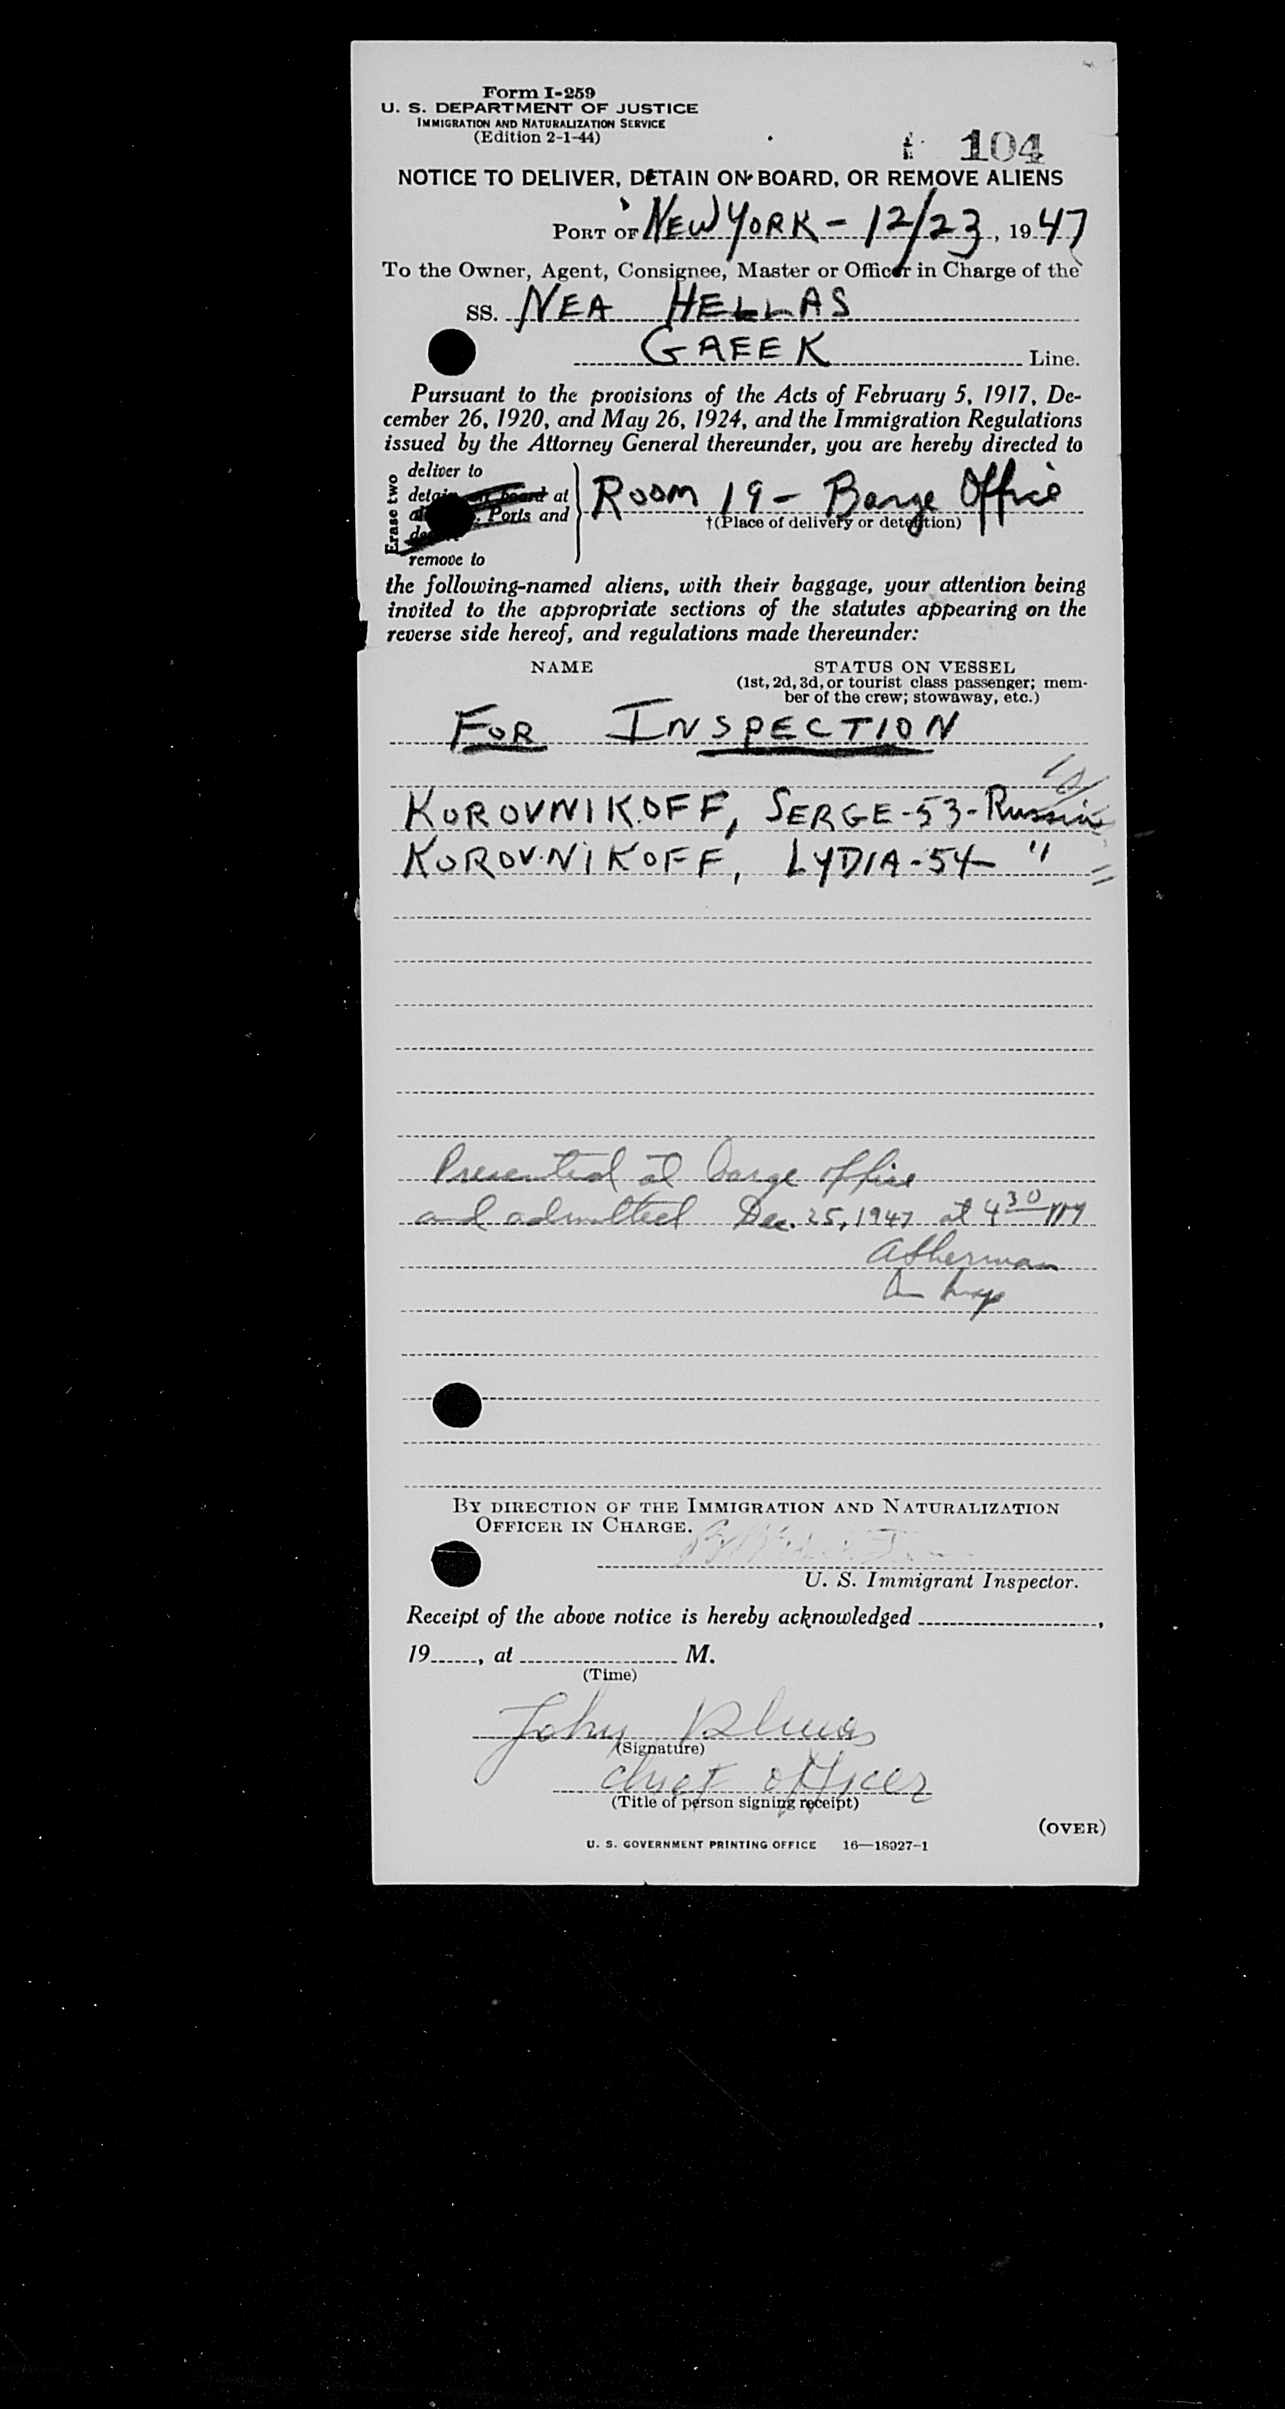 Form I-259
U. S. DEPARTMENT OF JUSTICE
IMMIGRATION AND NATURALIZATION SERVICE
(Edition 2-1-44)
104
NOTICE TO DELIVER, DETAIN ON BOARD, OR REMOVE ALIENS
PORT OF NEW YORK - 12/23, 1947
To the Owner, Agent, Consignee, Master or Officer in Charge of the
SS. NEA HELLAS
GREEK Line.
Pursuant to the provisions of the Acts of February 5, 1917, De-
cember 26, 1920, and May 26, 1924, and the Immigration Regulations
issued by the Attorney General thereunder, you are hereby directed to
Erase two
deliver to
detain on board at
Ports and
remove to
Room 19 - Barge Office
†(Place of delivery or detention)
the following-named aliens, with their baggage, your attention being
invited to the appropriate sections of the statutes appearing on the
reverse side hereof, and regulations made thereunder:
NAME STATUS ON VESSEL
(1st, 2d, 3d, or tourist class passenger; mem-
ber of the crew; stowaway, etc.)
FOR INSPECTION
KOROVNIKOFF, SERGE-53-Russia
KOROVNIKOFF, LYDIA-54- "
Presented at barge office
and admitted Dec. 25, 1947 at 4 30 PM
ASherman
BY DIRECTION OF THE IMMIGRATION AND NATURALIZATION
OFFICER IN CHARGE.
U. S. Immigrant Inspector.
Receipt of the above notice is hereby acknowledged ,
19 , at M.
(Time)
John
(Signature)
chief officer
(Title of person signing receipt)
(OVER)
U. S. GOVERNMENT PRINTING OFFICE 16—18027-1